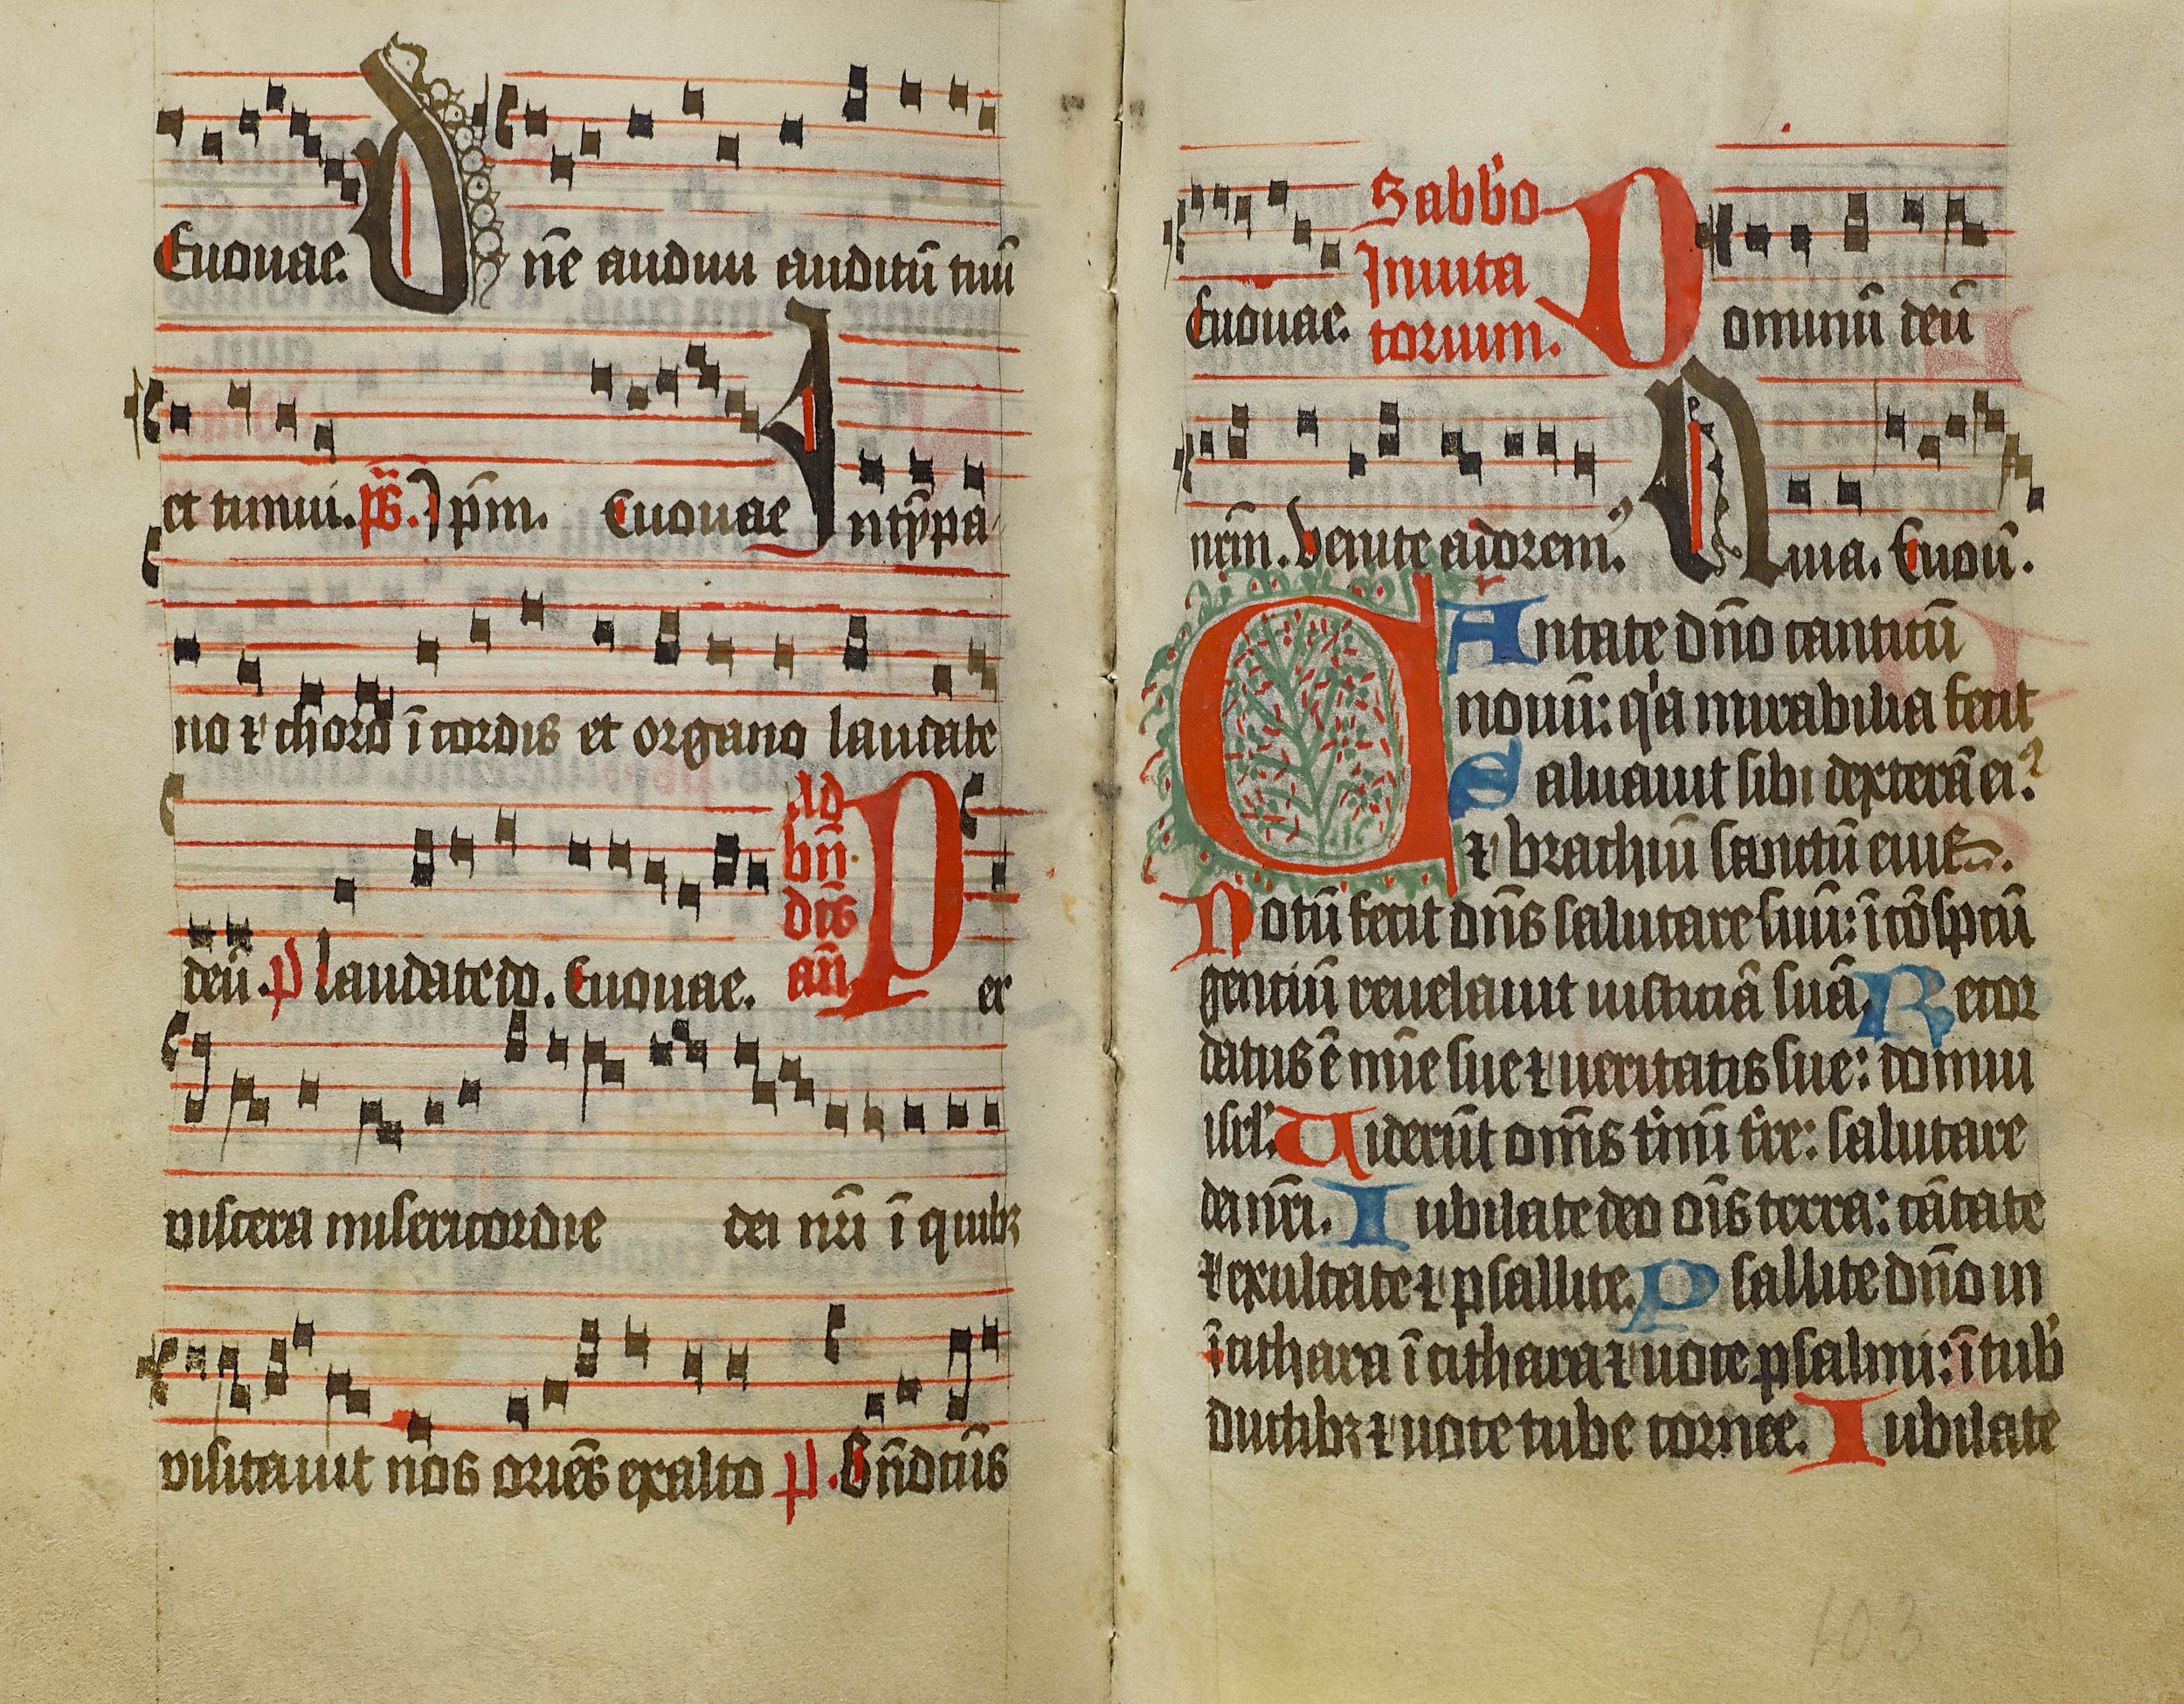 Euouae. Dñe audiui auditū tuū
et timui. p̄s. Ip̄m. Euouae Intȳpa
no ⁊ choro ī cordis et organo laudate
deū. p laudate do. Euouae. Ad bn̄dc̄s an̄ Per
viscera misericordie dei nr̄i ī quibꝫ
visitauit nos oriēs exalto p. Bn̄dctūs
Euouae. Sabb'o Inuitatorium. Dominū deū
nr̄m. Venite adorem⁹. Quia. Euou.
CAntate dn̄o canticū
nouū: q'a mirabilia fecit
Saluauit sibi dexterā ei⁹
⁊ brachiū sanctū eius.
Notū fecit dn̄s salutare suū: ī cōsp̄tū
gentiū reuelauit iusticiā suā. Recor
datus ē mīe sue ⁊ ueritatis sue: domui
isrl'. Uiderūt om̄s t'mīi t're: salutare
dei nr̄i. Iubilate deo oīs terra: cātate
⁊ exultate ⁊ psallite. Psallite dn̄o in
ī cithara ī cithara ⁊ uoce psalmi: ī tub'
ductibꝫ ⁊ uoce tube cornee. Iubilate
103